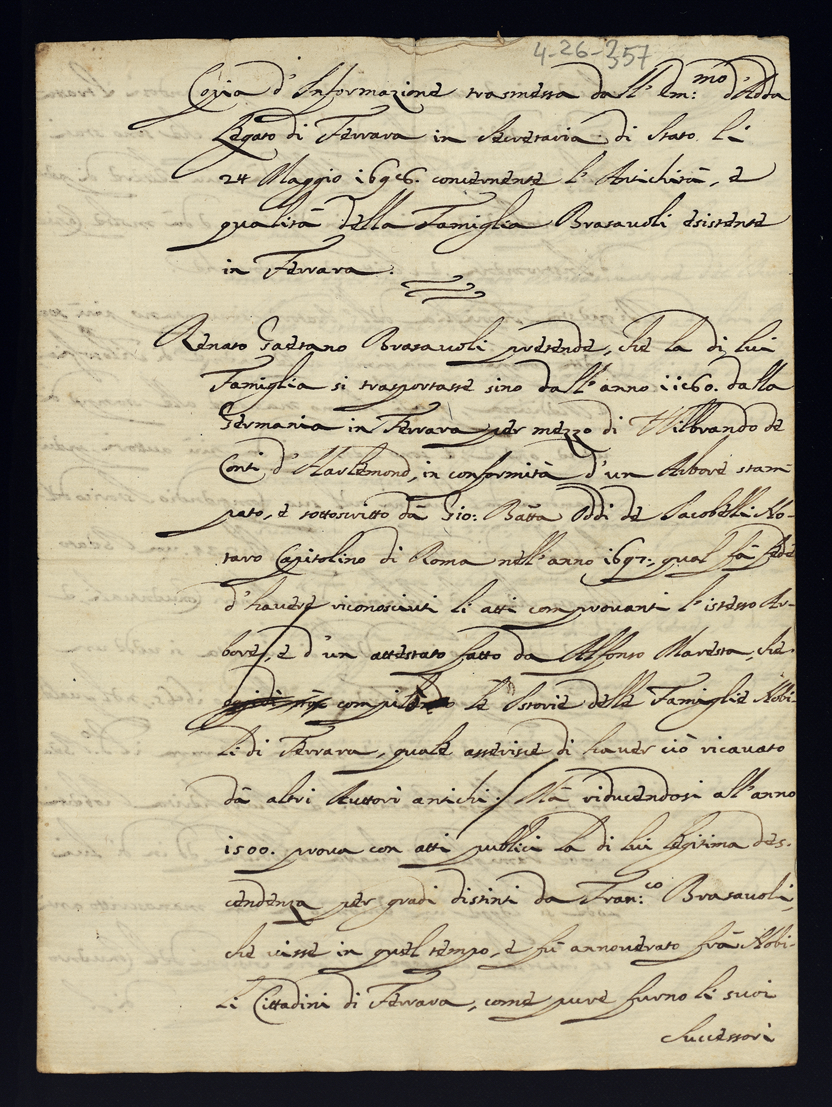 4-26-357
Copia d'Informazione trasmessa dall'Em:mo d'Adda
Legato di Ferrara in Secretaria di Stato li
24 Maggio 1696. concernente l'Antichità, e
qualità della Famiglia Brasavoli esistente
in Ferrara.
Renato Gaetano Brasavoli pretende, che la di lui
Famiglia si trasportasse sino dall'anno 1160. dalla
Germania in Ferrara per mezzo di Wilbrando de
Conti d'Harlemond, in conformità d'un Arbore stam-
pato, e sottoscritto dà Gio: Batta Oddi de Jacobelli No-
taro Capitolino di Roma nell'anno 1697:, qual fà fede
d'havere riconosciuti li atti comprovanti l'istesso Ar-
bore, e d'un attestato fatto da Alfonso Maresta, che
compilò le Istorie delle Famiglie Nobi-
li di Ferrara, quale asserisce di haver ciò ricavato
dà altri Auttori antichi. / Mà riducendosi all'anno
1500. prova con atti publici la di lui legitima des-
cendenza per gradi distinti da Fran:co Brasavoli,
che visse in quel tempo, e fù annoverato frà Nobi-
li Cittadini di Ferrara, come pure furno li suoi
successori